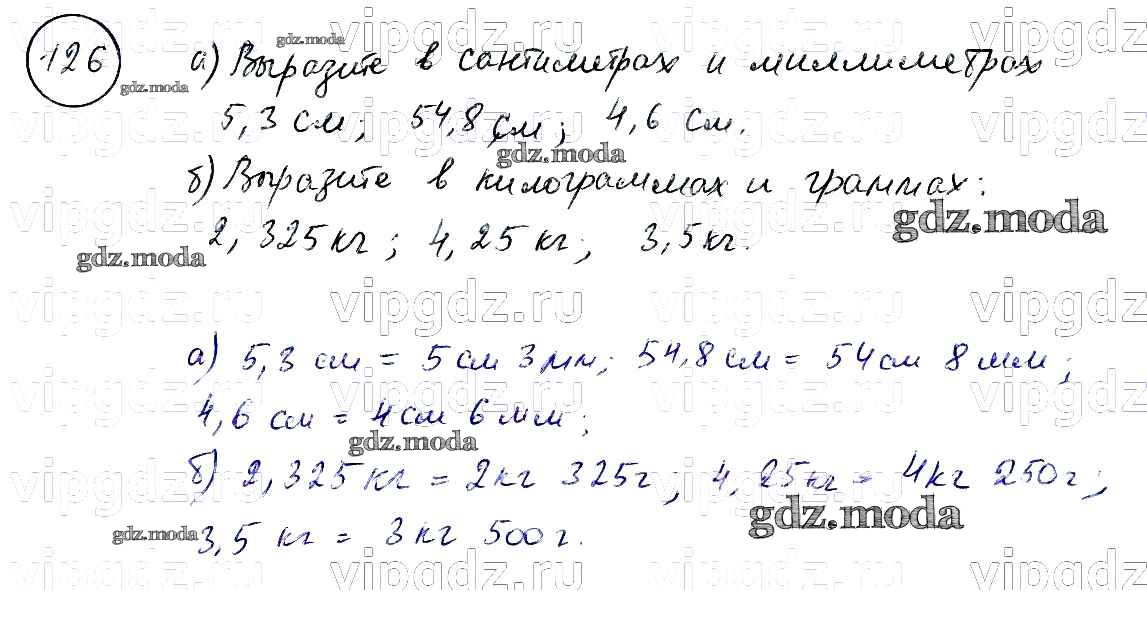 126 а) Выразите в сантиметрах и миллиметрах
5,3 см; 54,8 см; 4,6 см.
б) Выразите в килограммах и граммах:
2,325 кг; 4,25 кг; 3,5 кг.
а) 5,3 см = 5 см 3 мм; 54,8 см = 54 см 8 мм;
4,6 см = 4 см 6 мм;
б) 2,325 кг = 2 кг 325 г; 4,25 кг = 4 кг 250 г;
3,5 кг = 3 кг 500 г.